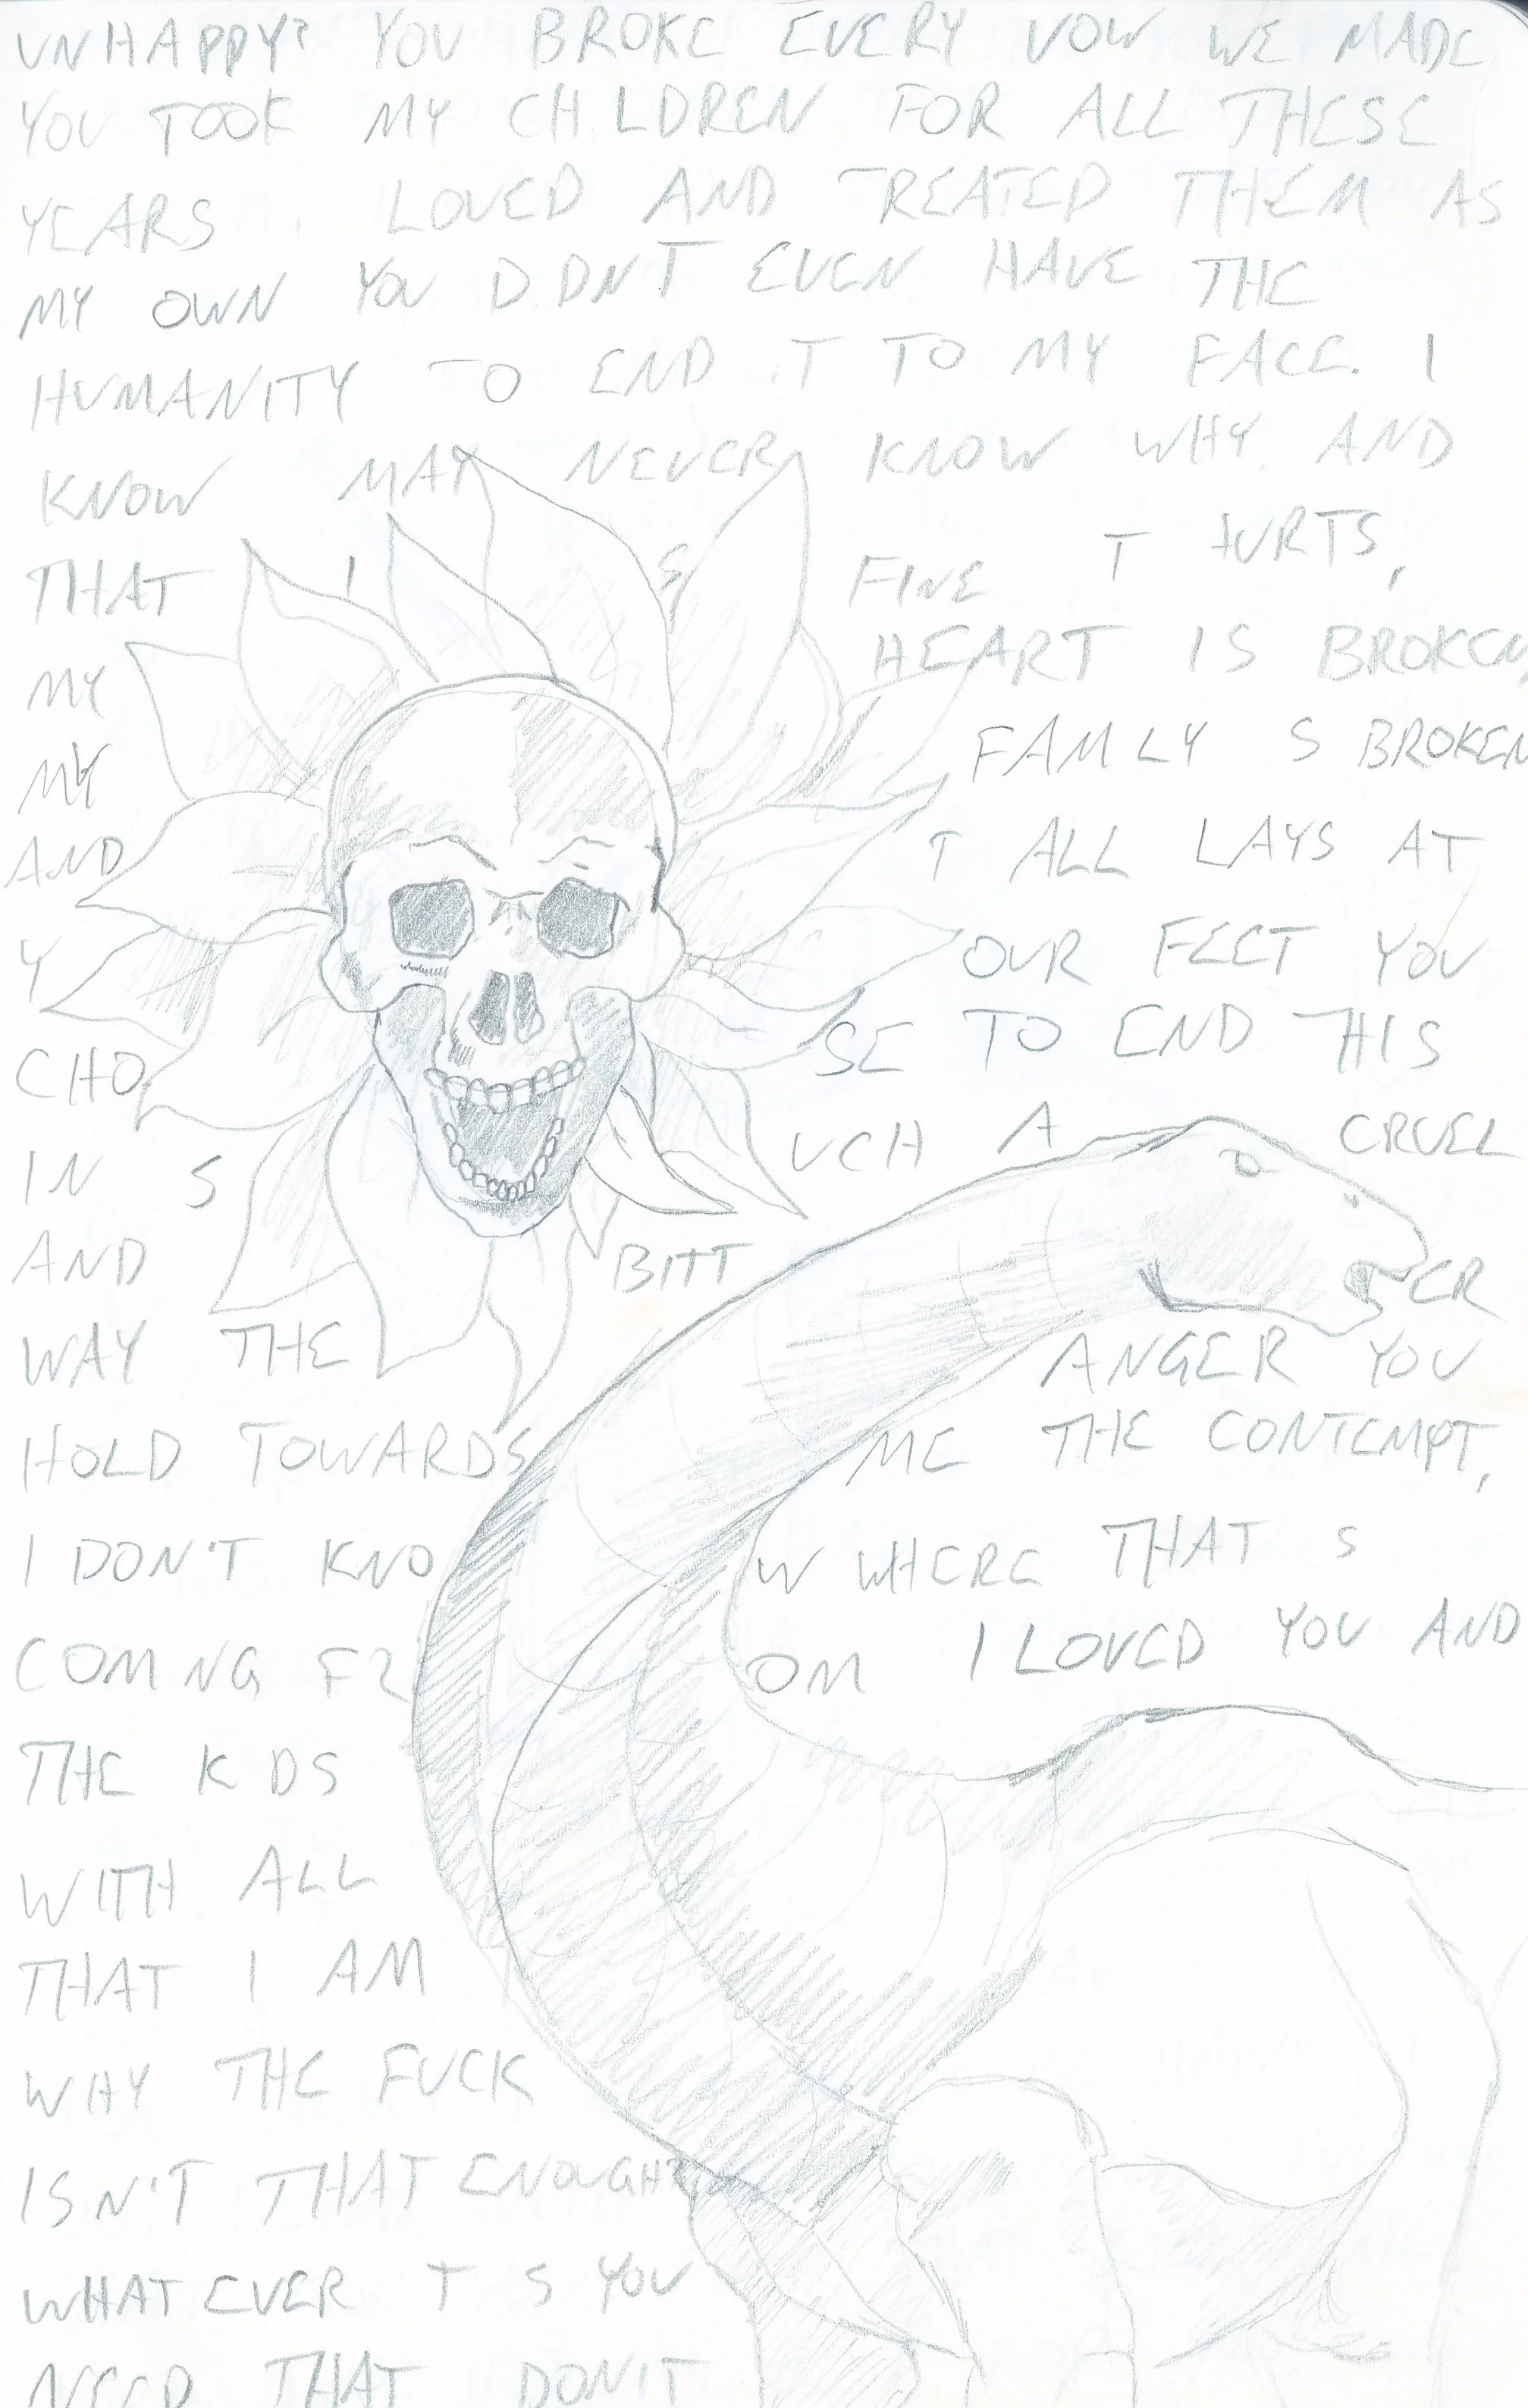 UNHAPPY? YOU BROKE EVERY VOW WE MADE
YOU TOOK MY CH LDREN FOR ALL THESE
YEARS I LOVED AND TREATED THEM AS
MY OWN YOU D DNT EVEN HAVE THE
HUMANITY TO END IT TO MY FACE. I
KNOW MAY NEVER KNOW WHY, AND
THAT I S FINE T HURTS,
MY HEART IS BROKEN,
MY FAM LY S BROKEN
AND T ALL LAYS AT
Y OUR FEET YOU
CHO SE TO END THIS
IN S UCH A CRUEL
AND BITT ER
WAY THE ANGER YOU
HOLD TOWARDS ME THE CONTEMPT,
I DON'T KNO W WHERE THAT S
COM NG FR OM I LOVED YOU AND
THE K DS
WITH ALL
THAT I AM
WHY THE FUCK
ISN'T THAT ENOUGH?
WHATEVER T S YOU
NEED THAT DON'T